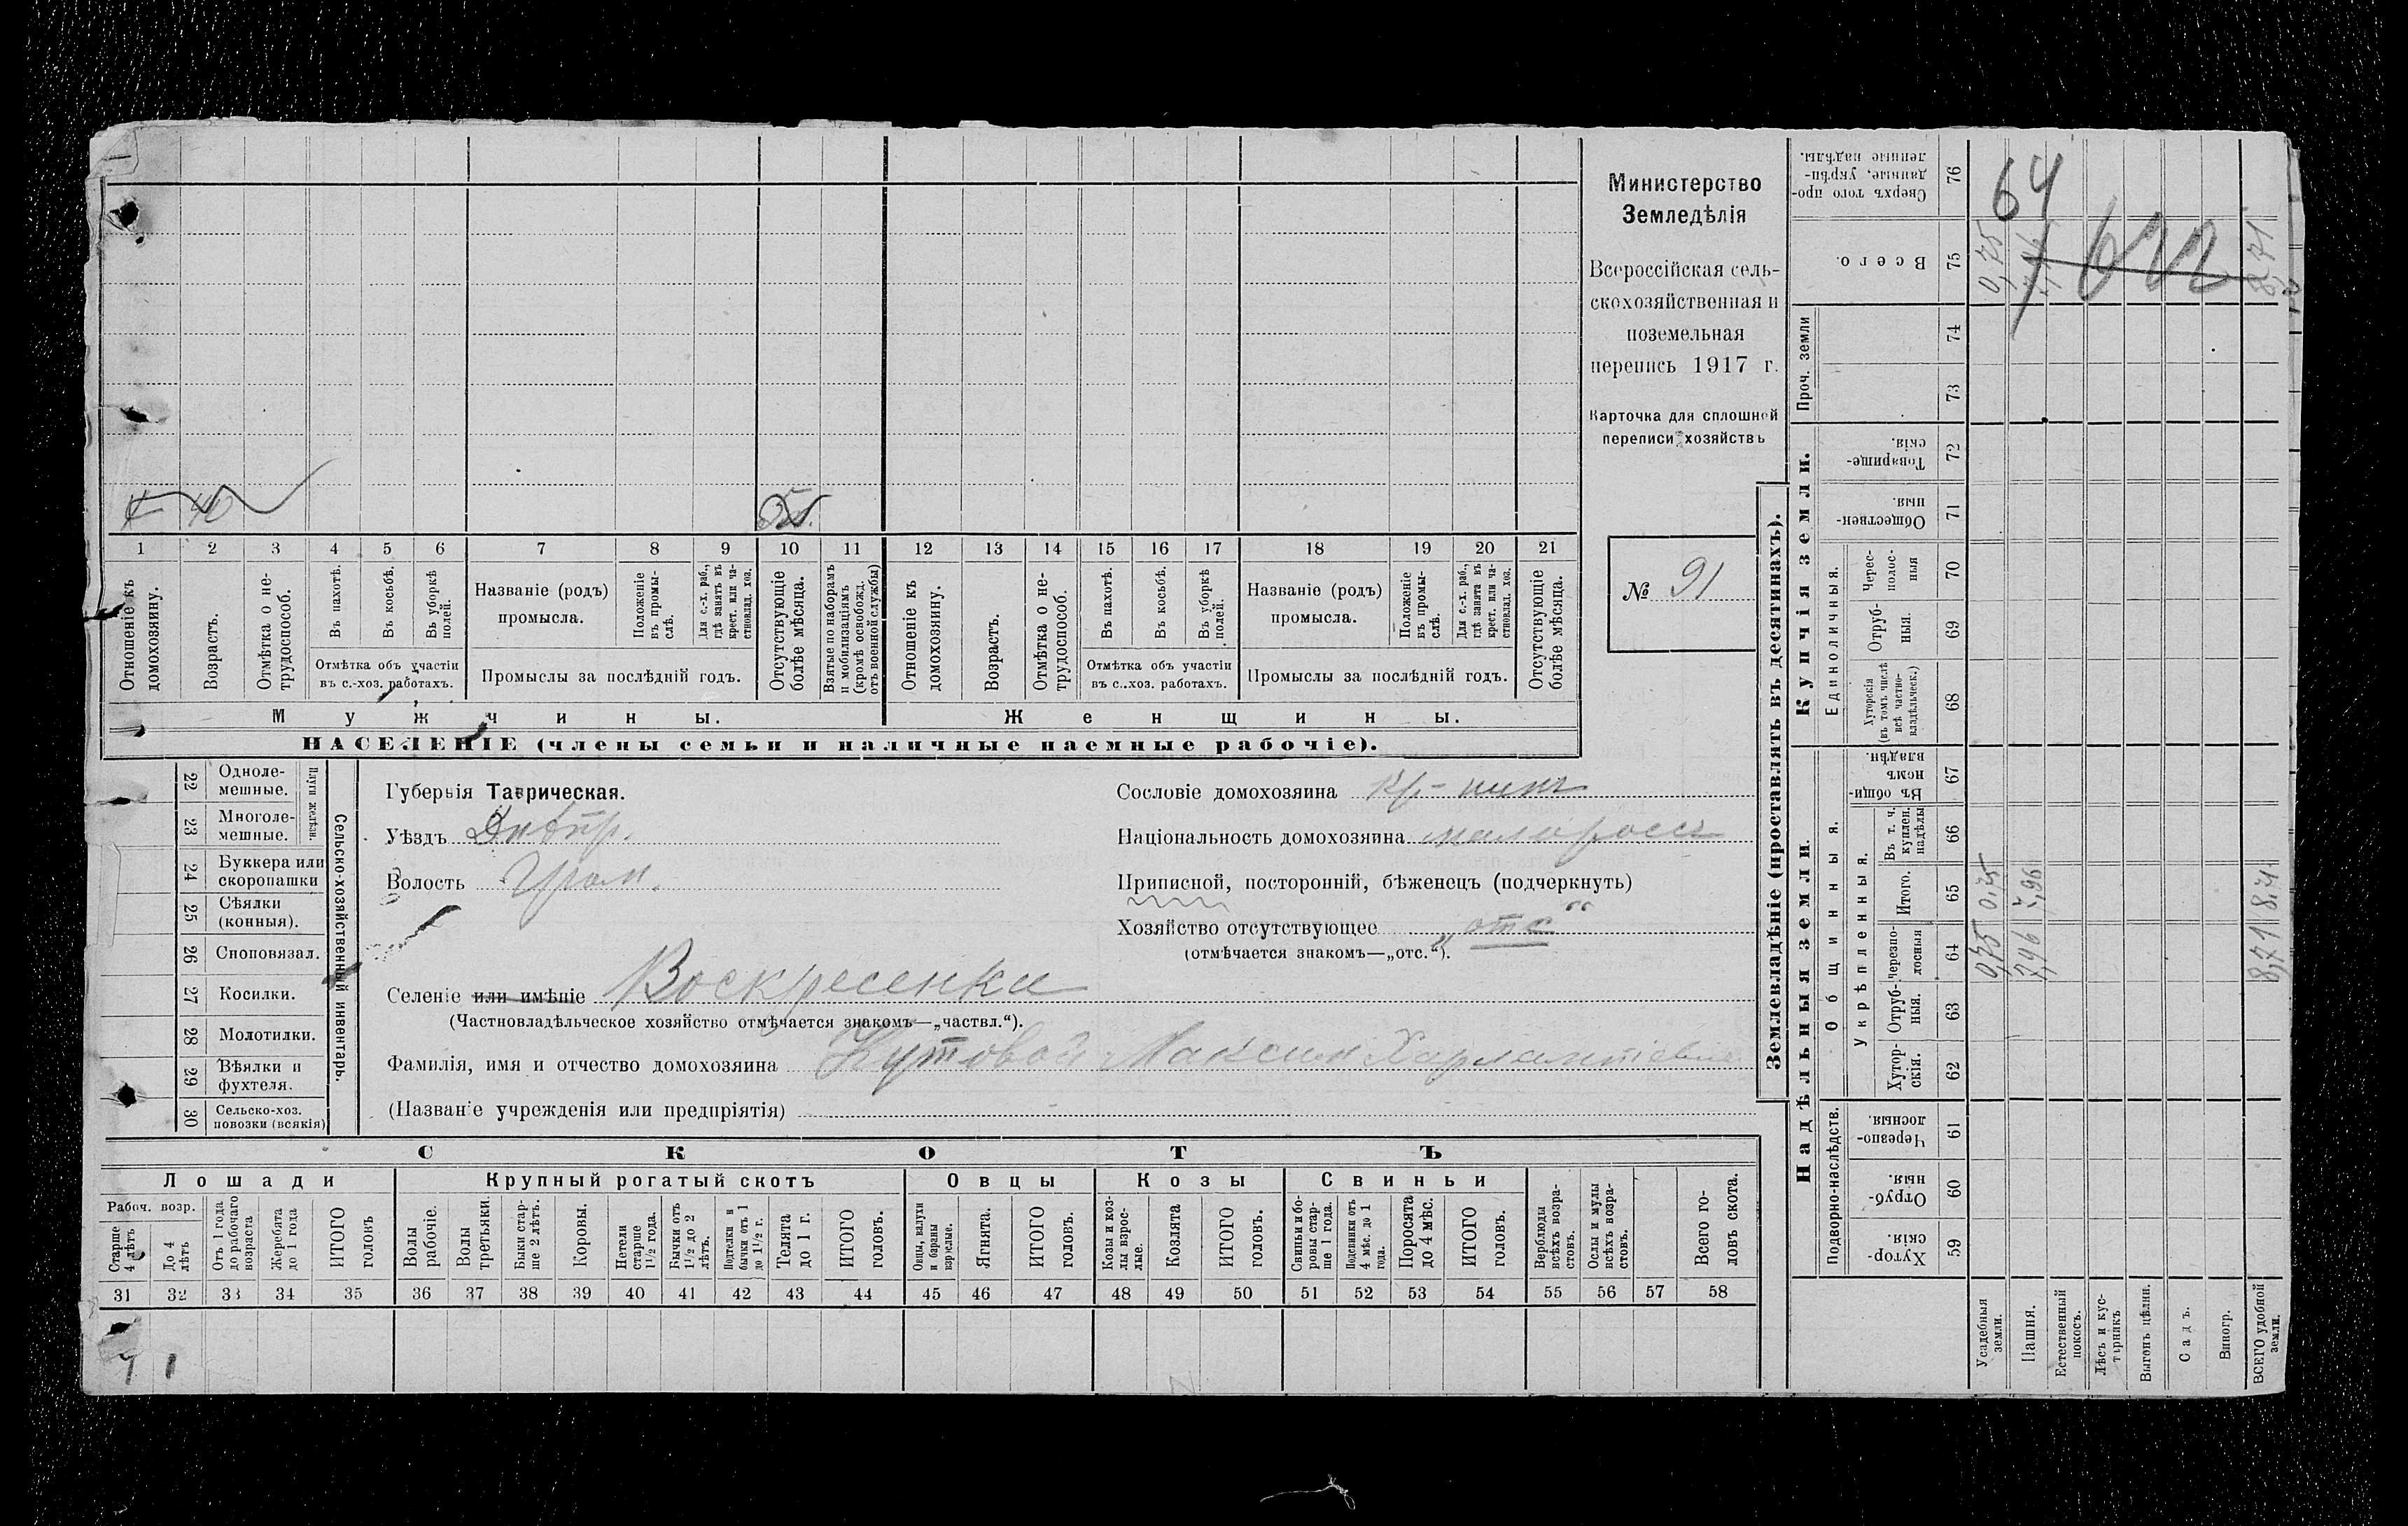 Министерство
Земледѣлія
Всероссійская сель-
скохозяйственная и
поземельная
перепись 1917 г.
Карточка для сплошной
переписи хозяйствъ
№ 91
1 2 3 4 5 6 7 8 9 10 11 12 13 14 15 16 17 18 19 20 21
Отношеніе къ домохозяину.
Возрастъ.
Отмѣтка о не-
трудоспособ.
Въ пахотѣ.
Въ косьбѣ.
Въ уборкѣ
полей.
Отмѣтка объ участіи
въ с.-хоз. работахъ.
Названіе (родъ)
промысла.
Положеніе
въ промы-
слѣ.
Для с.-х. раб.,
гдѣ занятъ въ
крест. или ча-
стновлад. хоз.
Промыслы за послѣдній годъ.
Отсутствующіе
болѣе мѣсяца.
Взятые по наборамъ
и мобилизаціямъ
(кромѣ освобожд.
отъ военной службы)
Отношеніе къ
домохозяину.
Возрастъ.
Отмѣтка о не-
трудоспособ.
Въ пахотѣ.
Въ косьбѣ.
Въ уборкѣ
полей.
Отмѣтка объ участіи
въ с.-хоз. работахъ.
Названіе (родъ)
промысла.
Положеніе
въ промы-
слѣ.
Для с.-х. раб.,
гдѣ занята въ
крест. или ча-
стновлад. хоз.
Промыслы за послѣдній годъ.
Отсутствующіе
болѣе мѣсяца.
Мужчины.
Женщины.
НАСЕЛЕНІЕ (члены семьи и наличные наемные рабочіе).
22 Одноле-
мешные.
23 Многоле-
мешные.
Плуги желѣзн.
24 Буккера или
скоропашки
25 Сѣялки
(конныя).
26 Сноповязал.
27 Косилки.
28 Молотилки.
29 Вѣялки и
фухтеля.
30 Сельско-хоз.
повозки (всякія)
Сельско-хозяйственный инвентарь.
Губернія Таврическая.
Уѣздъ Днѣпр.
Волость Гром.
Селеніе или имѣніе Воскресенка
(Частновладѣльческое хозяйство отмѣчается знакомъ—„частвл.“).
Фамилія, имя и отчество домохозяина Кутовой Максим Харлампіевич
(Названіе учрежденія или предпріятія)
Сословіе домохозяина кр-нинъ
Національность домохозяина малороссъ
Приписной, посторонній, бѣженецъ (подчеркнуть)
Хозяйство отсутствующее „отс“
(отмѣчается знакомъ—„отс.“).
СКОТЪ
Лошади
Крупный рогатый скотъ
Овцы
Козы
Свиньи
Рабоч. возр.
Старше
4 лѣтъ
До 4
лѣтъ
Отъ 1 года
до рабочаго
возраста
Жеребята
до 1 года
ИТОГО
головъ
Волы
рабочіе.
Волы
третьяки.
Быки стар-
ше 2 лѣтъ.
Коровы.
Нетели
старше
1½ года.
Бычки отъ
1½ до 2
лѣтъ.
Подтелки и
бычки отъ 1
до 1½ г.
Телята
до 1 г.
ИТОГО
головъ.
Овцы, валухи
и бараны
взрослые.
Ягнята.
ИТОГО
головъ.
Козы и коз-
лы взрос-
лые.
Козлята
ИТОГО
головъ.
Свиньи и бо-
ровы стар-
ше 1 года.
Подсвинки отъ
4 мѣс. до 1
года.
Поросята
до 4 мѣс.
ИТОГО
головъ.
Верблюды
всѣхъ возра-
стовъ.
Ослы и мулы
всѣхъ возра-
стовъ.
Всего го-
ловъ скота.
31 32 33 34 35 36 37 38 39 40 41 42 43 44 45 46 47 48 49 50 51 52 53 54 55 56 57 58
Землевладѣніе (проставлять въ десятинахъ).
Надѣльныя земли.
Купчія земли.
Проч. земли
Подворно-наслѣдств.
Общинныя.
Укрѣпленныя.
Единоличныя.
Сверхъ того про-
данные, укрѣп-
ленные надѣлы.
76
Всего.
75
74
73
Товарище-
скія.
72
Обществен-
ныя.
71
Черес-
полос-
ныя
70
Отруб-
ныя.
69
Хуторскія
(въ томъ числѣ
всѣ частно-
владѣльческ.)
68
Въ общи-
номъ
владѣн.
67
Въ т. ч.
куплен.
надѣлы
66
Итого.
65
Черезпо-
лосныя
64
Отруб-
ныя.
63
Хутор-
скія.
62
Черезпо-
лосныя.
61
Отруб-
ныя.
60
Хутор-
скія.
59
Усадебныя
земли.
0,75 0,75 0,75
Пашня.
7,96 7,96
Естественный
покосъ.
Лѣсъ и кус-
тарникъ
Выгонъ цѣлин.
Садъ.
Виногр.
ВСЕГО удобной
земли.
8,71 8,71 8,71
64